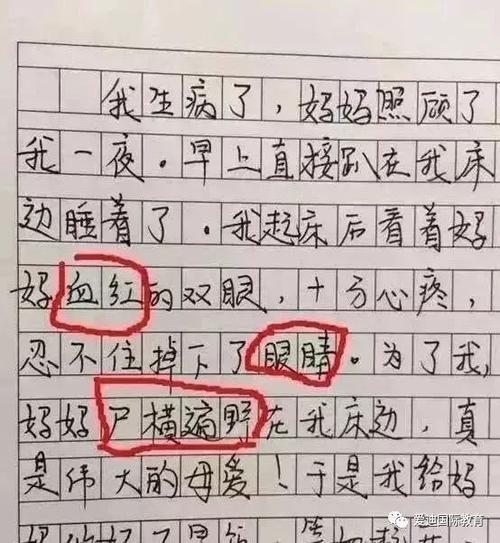 我生病了，妈妈照顾了
我一夜。早上直接趴在我床
边睡着了。我起床后看着妈
妈血红的双眼，十分心疼，
忍不住掉下了眼睛。为了我，
妈妈尸横遍野在我床边，真
是伟大的母爱！于是我给妈
爱迪国际教育